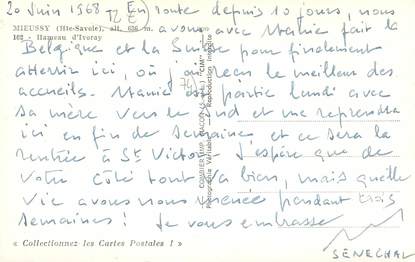 20 Juin 1968 (En) route depuis 10 jours, nous
MIEUSSY (Hte-Savoie), alt. 636 m.
avons avec Mamie fait la
102 - Hameau d'Ivoray
Belgique et la Suisse pour finalement
atterrir ici, où j'ai reçu le meilleur des
accueils. Mamie est partie lundi avec
sa mère vers le Sud et me reprendra
ici en fin de semaine et ce sera la
rentrée à St Victor. J'espère que de
votre côté tout va bien, mais quelle
vie avons nous menée pendant trois
semaines! Je vous embrasse
« Collectionnez les Cartes Postales ! »
SENECHAL
COMBIER IMP. MACON
Reproduction Interdite